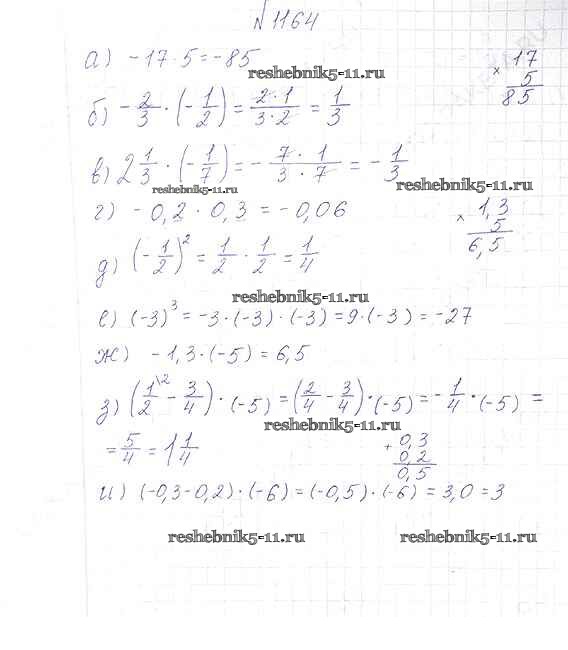 №1164
а) -17·5=-85
× 17
5
85
reshebnik5-11.ru
б) -2/3 · (-1/2) = 2·1/3·2 = 1/3
в) 2 1/3 · (-1/7) = - 7·1/3·7 = -1/3
reshebnik5-11.ru
reshebnik5-11.ru
г) -0,2 · 0,3 = -0,06
× 1,3
5
6,5
д) (-1/2)² = 1/2 · 1/2 = 1/4
reshebnik5-11.ru
е) (-3)³ = -3·(-3)·(-3)=9·(-3)=-27
ж) -1,3·(-5) = 6,5
з) (1/2\2 - 3/4)·(-5) = (2/4 - 3/4)·(-5) = -1/4·(-5) =
= 5/4 = 1 1/4
reshebnik5-11.ru
+ 0,3
0,2
0,5
и) (-0,3-0,2)·(-6)=(-0,5)·(-6) = 3,0=3
reshebnik5-11.ru
reshebnik5-11.ru